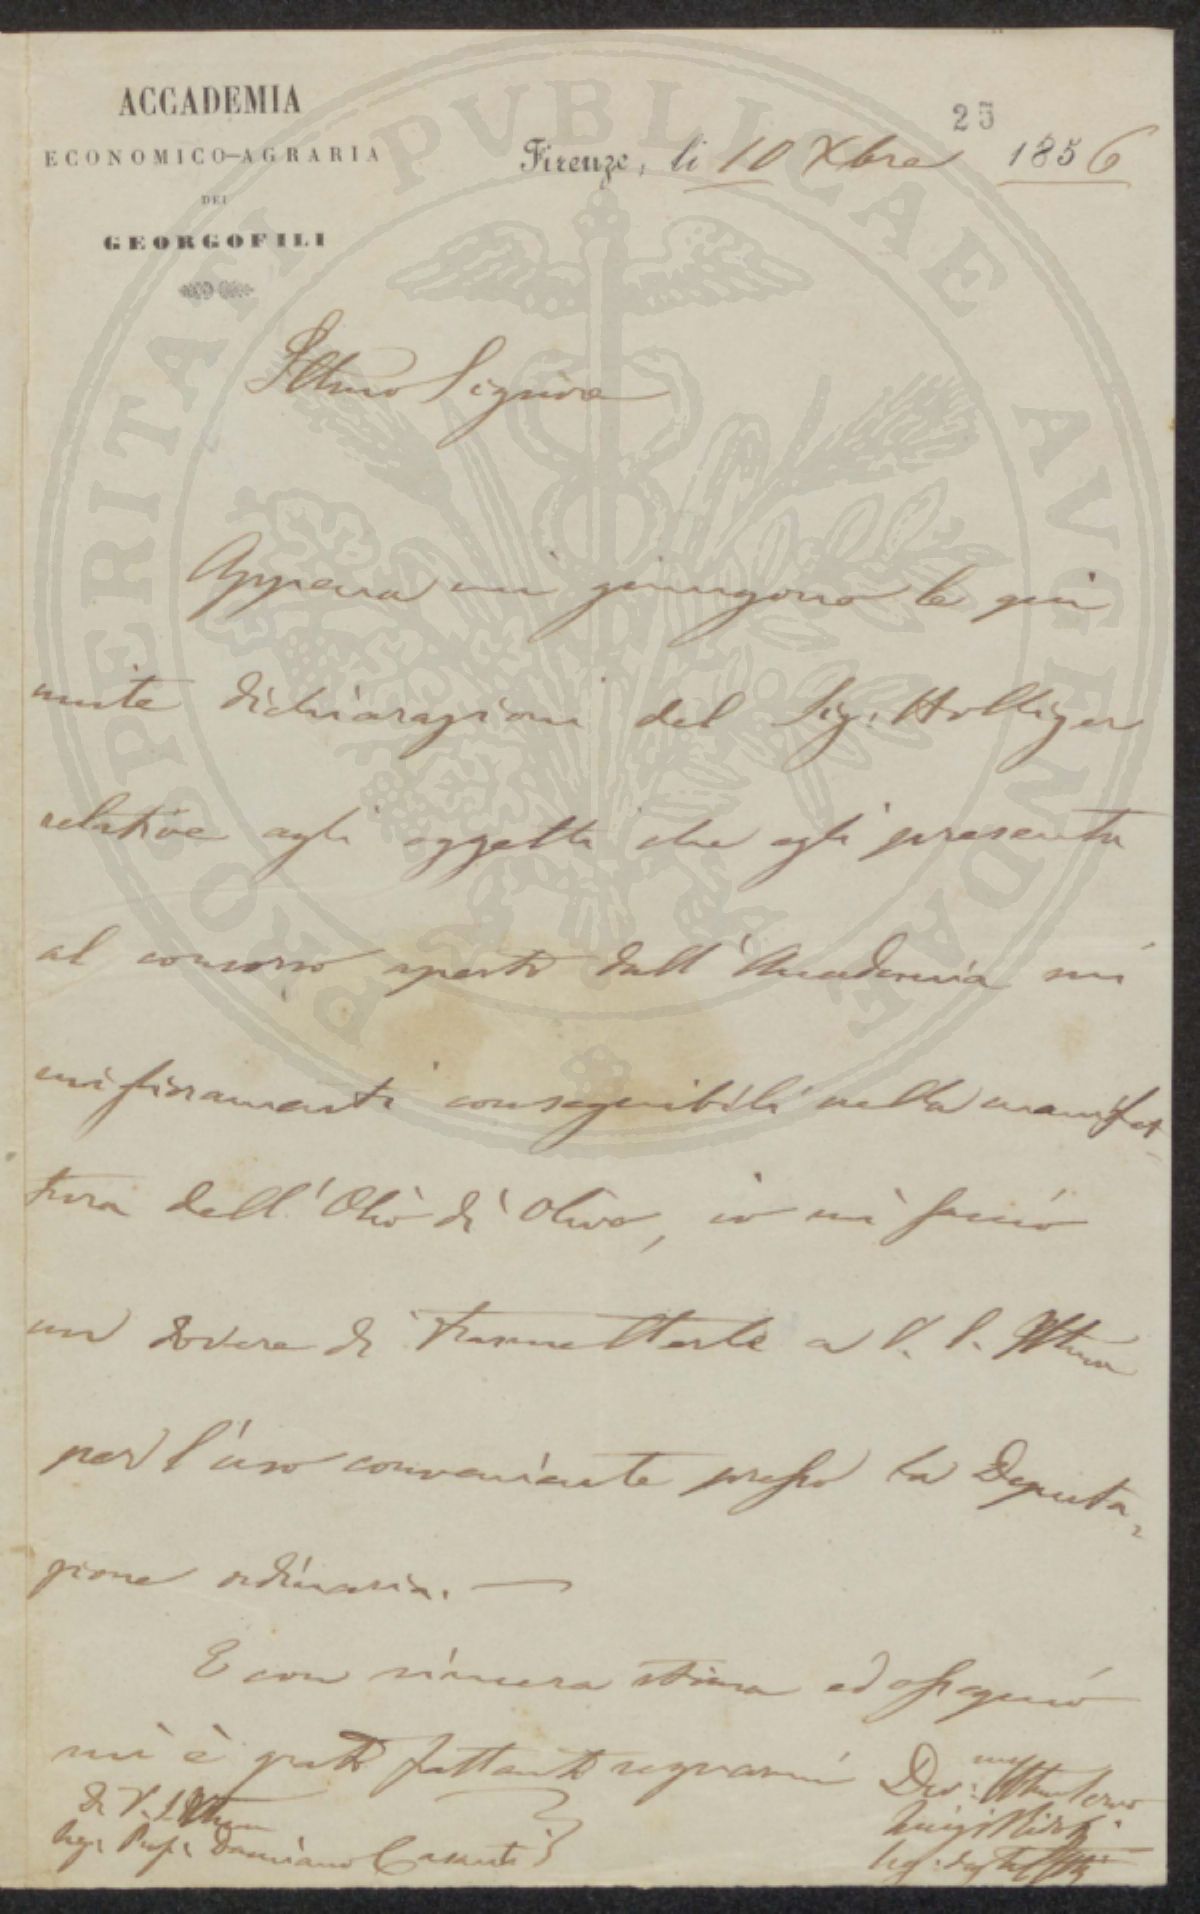 ACCADEMIA
ECONOMICO-AGRARIA
DEI
GEORGOFILI
25
Firenze, li 10 Xbre 1856
Illmo Signore
Appena mi giungono le qui
unite dichiarazioni del Sig. Holliger
relative agli oggetti che egli presenta
al concorso aperto dall'Accademia sui
miglioramenti conseguibili nella manifat-
tura dell'Olio di Oliva, io mi faccio
un dovere di trasmetterle a V. S. Illma
per l'uso conveniente presso la Deputa-
zione ordinaria. —
E con sincera stima ed ossequio
mi è grato frattanto segnarmi
di V. S. Illma
Sig. Prof. Damiano Casanti
Dev.mo
Luigi Ridolfi
PROSPERITATI PVBLICAE AVGENDAE